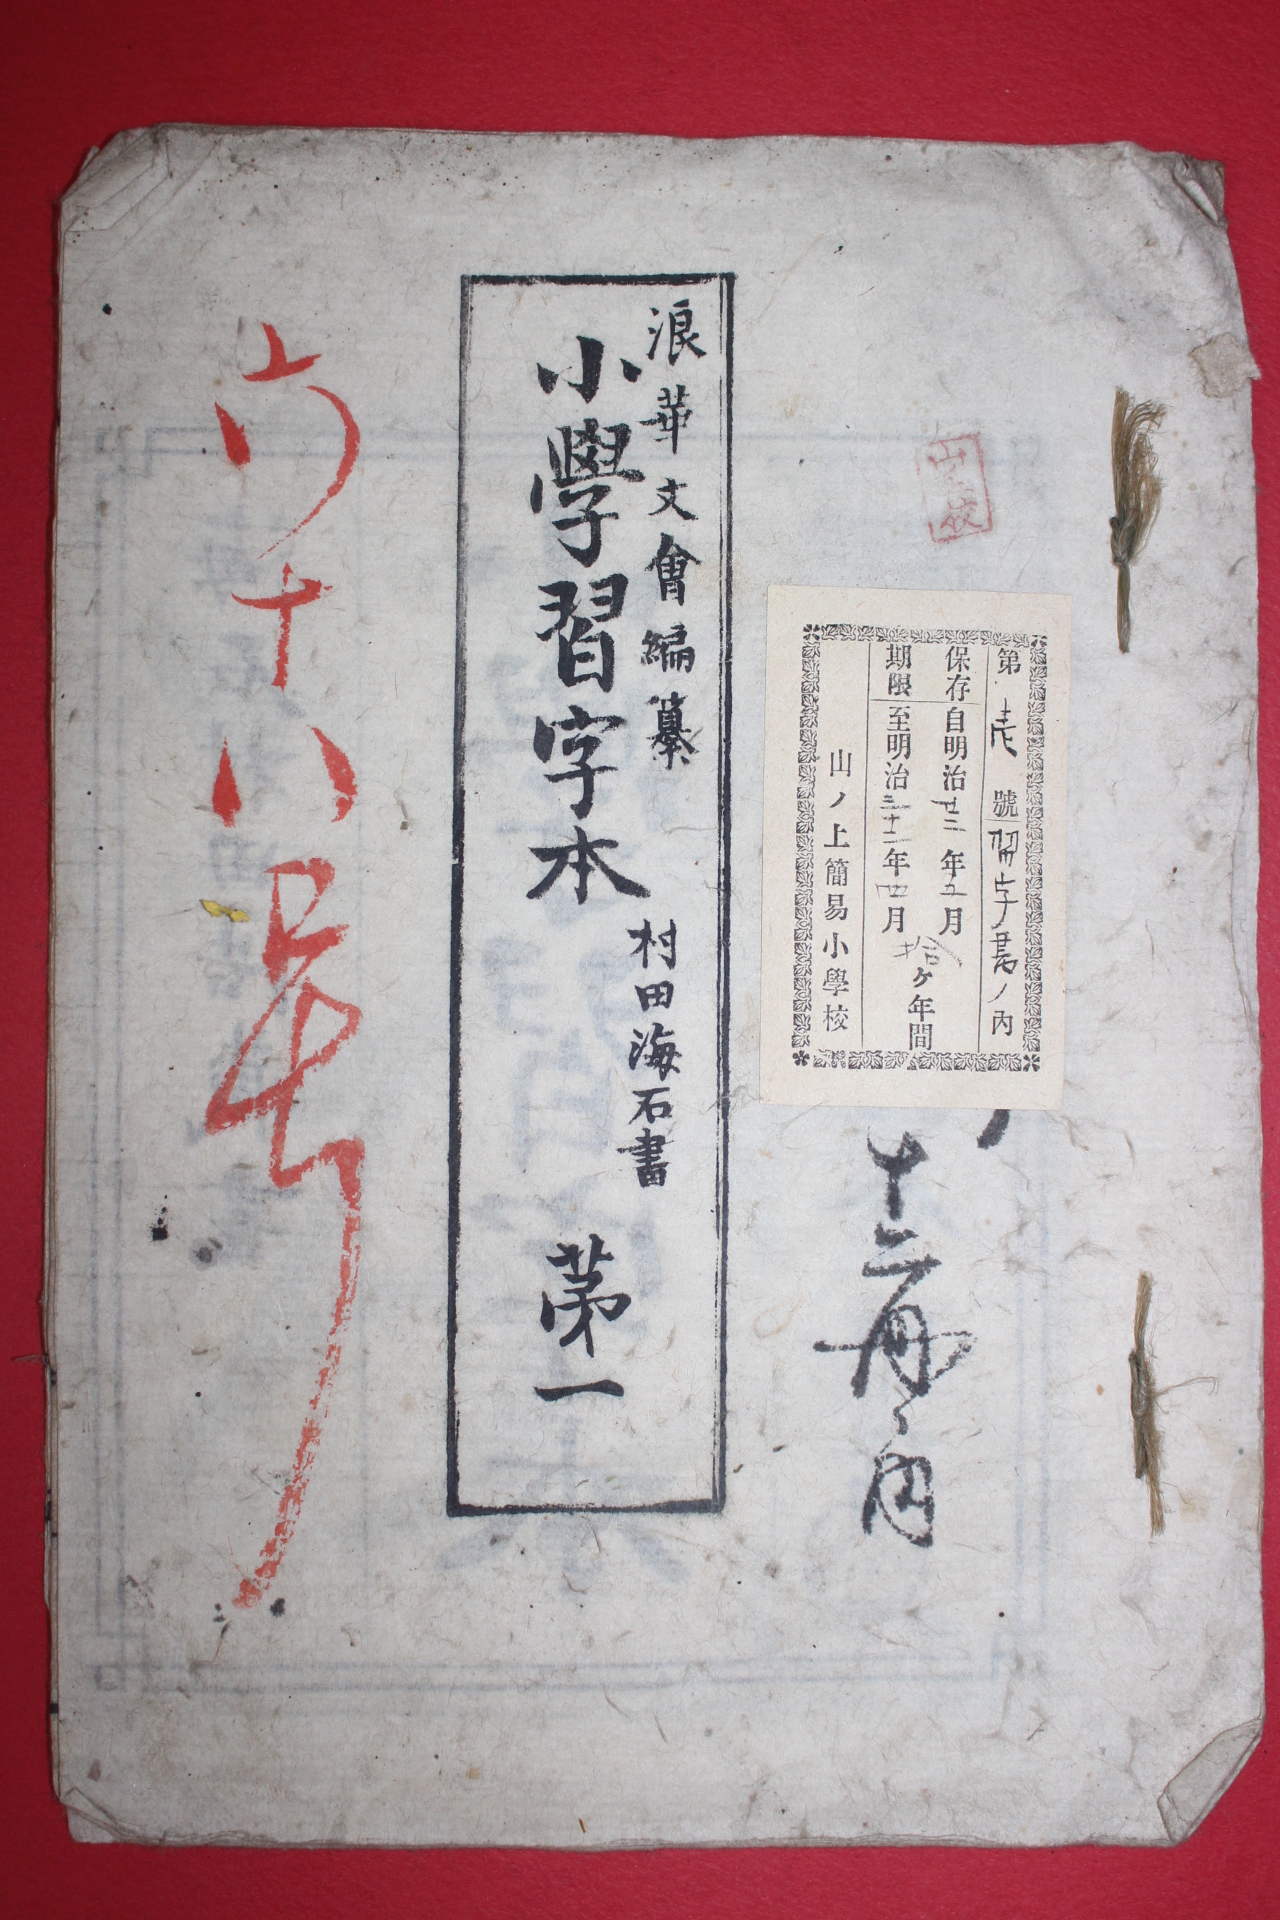 第壱號習字書ノ内
保存自明治廿二年五月
期限至明治三十二年四月
拾ヶ年間
山ノ上簡易小學校
十二冊ノ内
浪華文會編纂
小學習字本 第一
村田海石書
六十八号